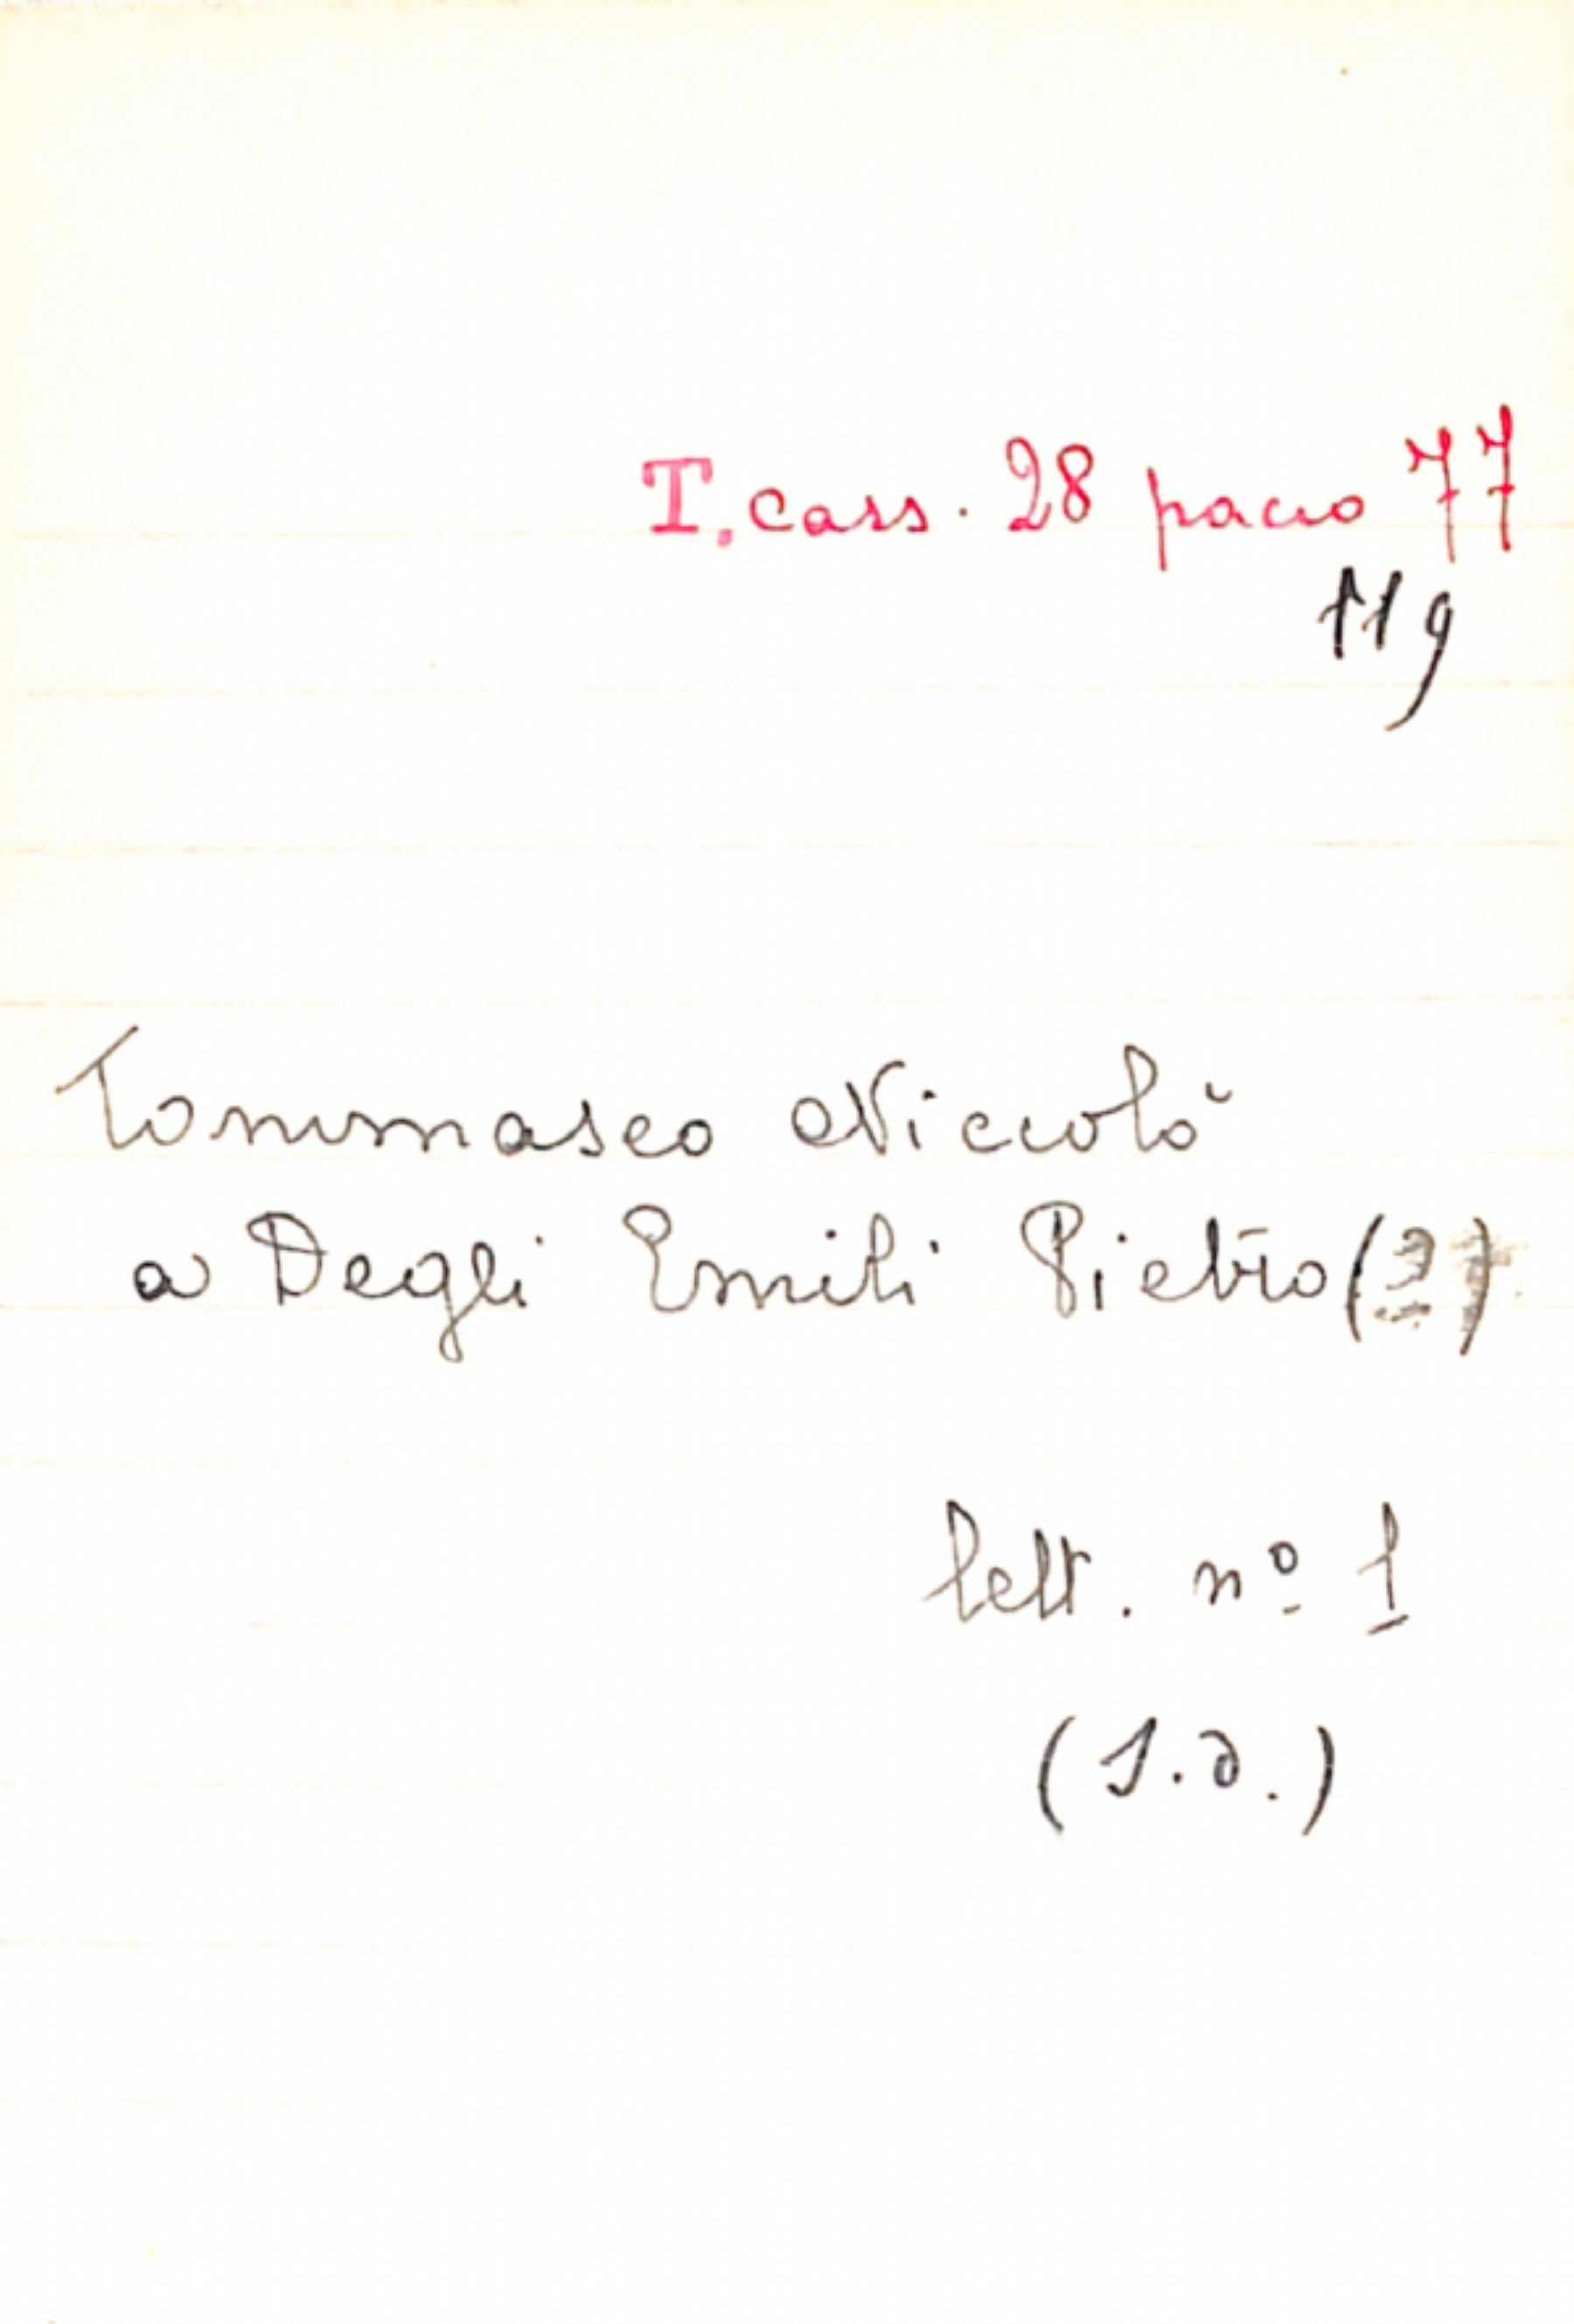 T. cass. 28 pacco 77
119
Tommaseo Niccolò
a Degli Emili Pietro (?)
lett. nº 1
(s.d.)